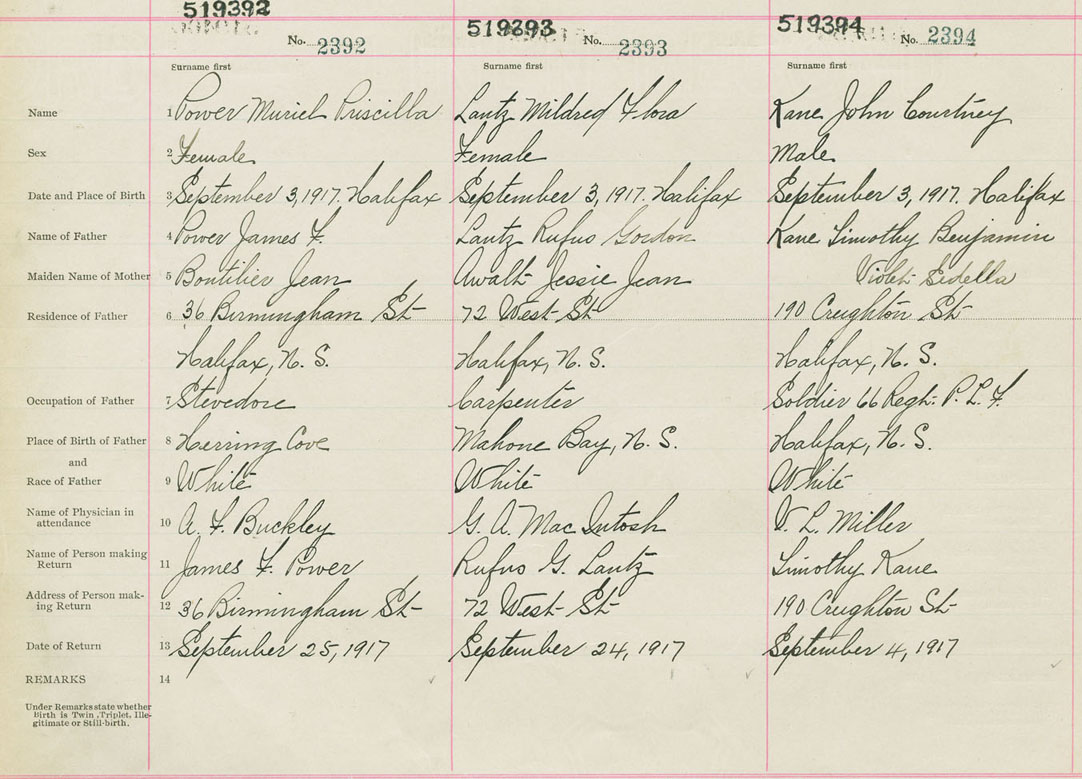 519392 519393 519394
No. 2392 No. 2393 No. 2394
Surname first Surname first Surname first
Name 1 Power Muriel Priscilla Lantz Mildred Flora Kane John Courtney
Sex 2 Female Female Male
Date and Place of Birth 3 September 3, 1917. Halifax September 3, 1917. Halifax September 3, 1917. Halifax
Name of Father 4 Power James F. Lantz Rufus Gordon Kane Timothy Benjamin
Maiden Name of Mother 5 Boutilier Jean Awalt Jessie Jean Violet
Residence of Father 6 36 Birmingham St 72 West St 190 Creighton St
Halifax, N. S. Halifax, N. S. Halifax, N. S.
Occupation of Father 7 Stevedore Carpenter Soldier 66 Regt. P. L. F.
Place of Birth of Father 8 Herring Cove Mahone Bay, N. S. Halifax, N. S.
and
Race of Father 9 White White White
Name of Physician in
attendance 10 A. F. Buckley G. A. Mac Intosh V. L. Miller
Name of Person making
Return 11 James F. Power Rufus G. Lantz Timothy Kane
Address of Person mak-
ing Return 12 36 Birmingham St 72 West St 190 Creighton St
Date of Return 13 September 25, 1917 September 24, 1917 September 4, 1917
REMARKS 14
Under Remarks state whether
Birth is Twin, Triplet, Ille-
gitimate or Still-birth.